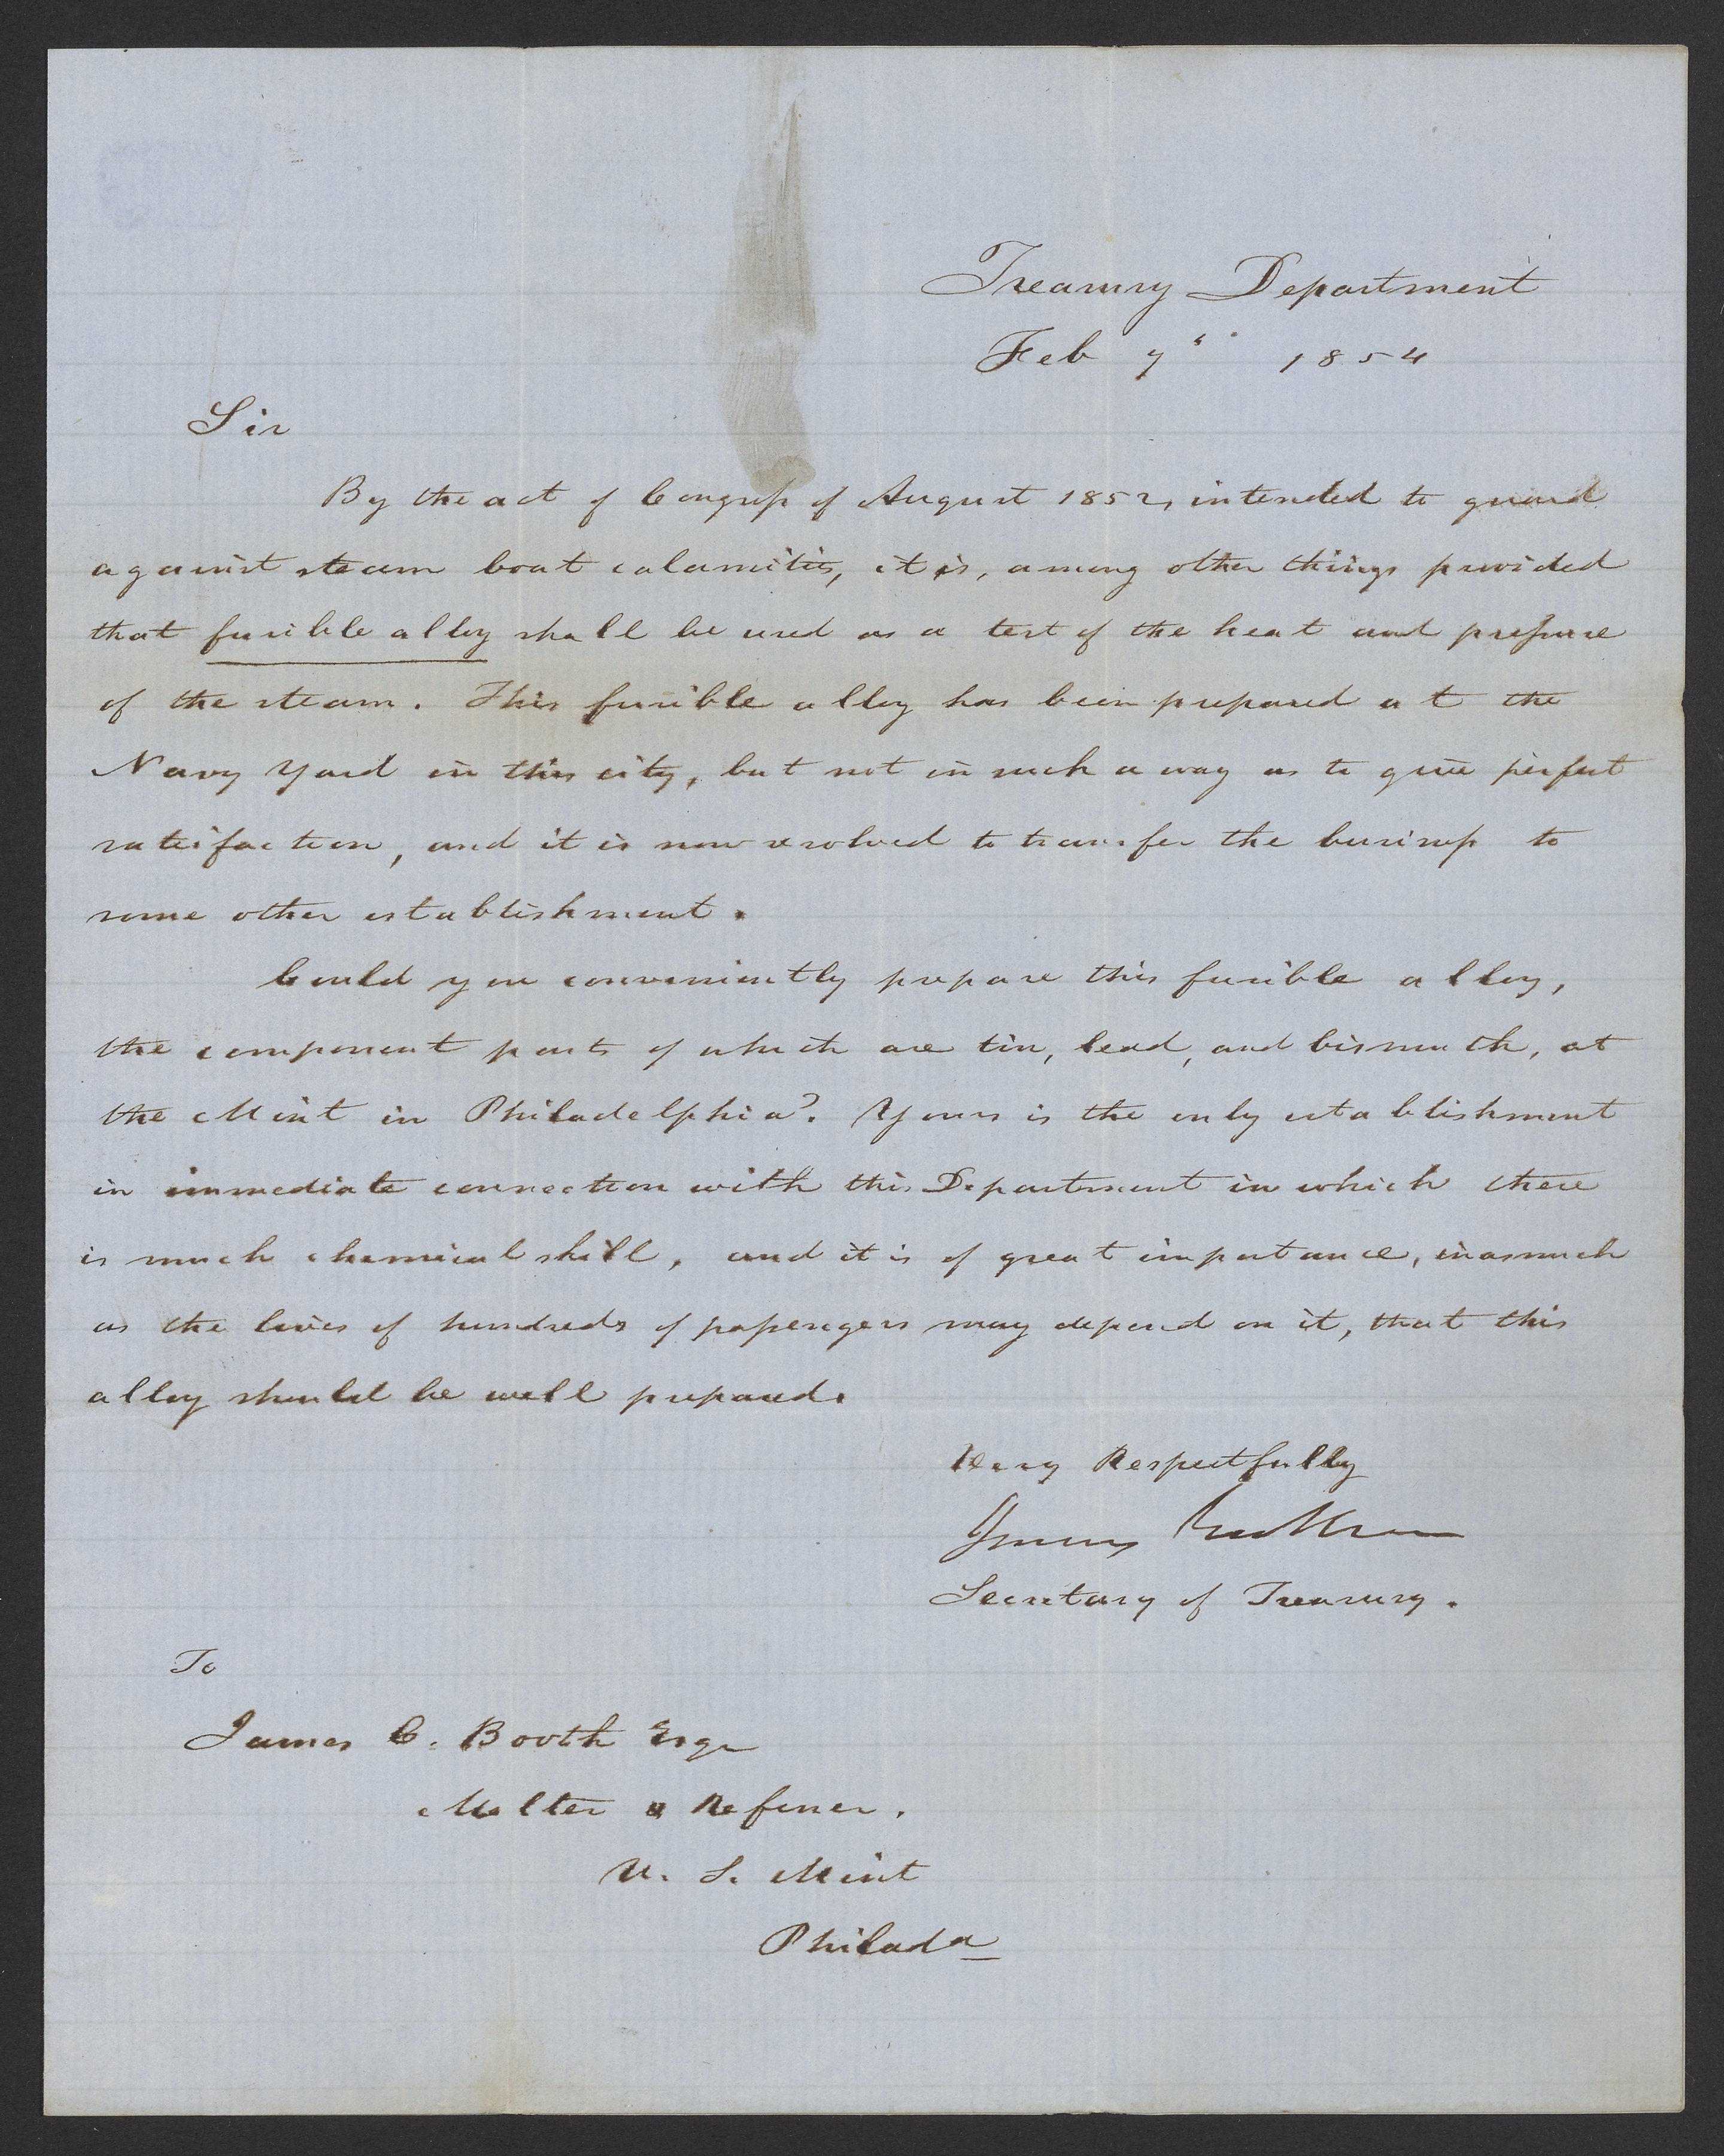 Treasury Department
Feb 7" 1854
Sir
By the act of Congress of August 1852, intended to guard
against steam boat calamities, it is, among other things provided
that fusible alloy shall be used as a test of the heat and pressure
of the steam. This fusible alloy has been prepared at the
Navy Yard in this city, but not in such a way as to give perfect
satisfaction, and it is now resolved to transfer the business to
some other establishment.
Could you conveniently prepare this fusible alloy,
the component parts of which are tin, lead, and bismuth, at
the Mint in Philadelphia? Yours is the only establishment
in immediate connection with this Department in which there
is much chemical skill, and it is of great importance, inasmuch
as the lives of hundreds of passengers may depend on it, that this
alloy should be well prepared.
Very Respectfully
James Guthrie
Secretary of Treasury.
To
James C. Booth Esqr
Melter & Refiner.
U. S. Mint
Philada